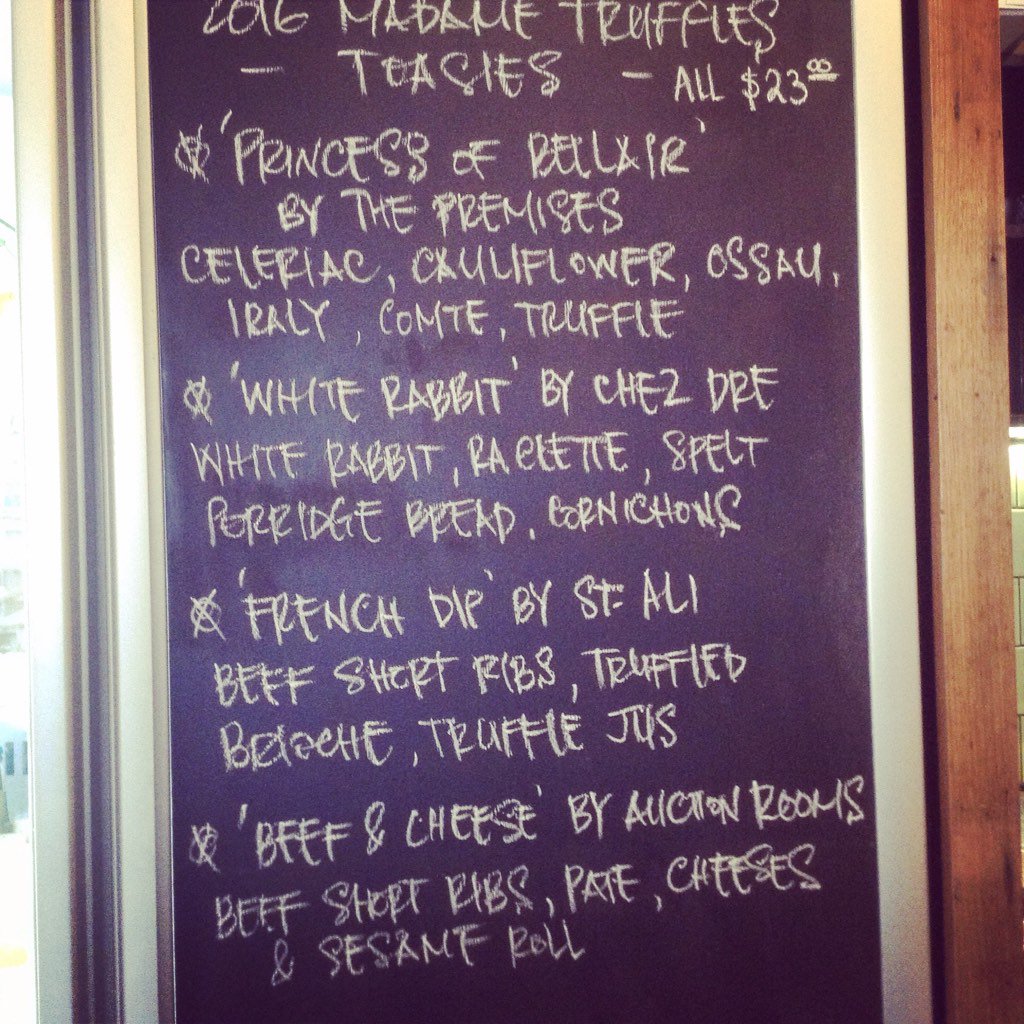 2016 MADAME TRUFFLES
- TOASIES - ALL $23.00
'PRINCESS OF BELLAIR'
BY THE PREMISES
CELERIAC, CAULIFLOWER, OSSAU,
IRALY, COMTE, TRUFFLE
'WHITE RABBIT' BY CHEZ DRE
WHITE RABBIT, RACLETTE, SPELT
PORRIDGE BREAD, CORNICHONS
'FRENCH DIP' BY ST. ALI
BEEF SHORT RIBS, TRUFFLED
BRIOCHE, TRUFFLE JUS
'BEEF & CHEESE' BY AUCTION ROOMS
BEEF SHORT RIBS, PATE, CHEESES
& SESAME ROLL